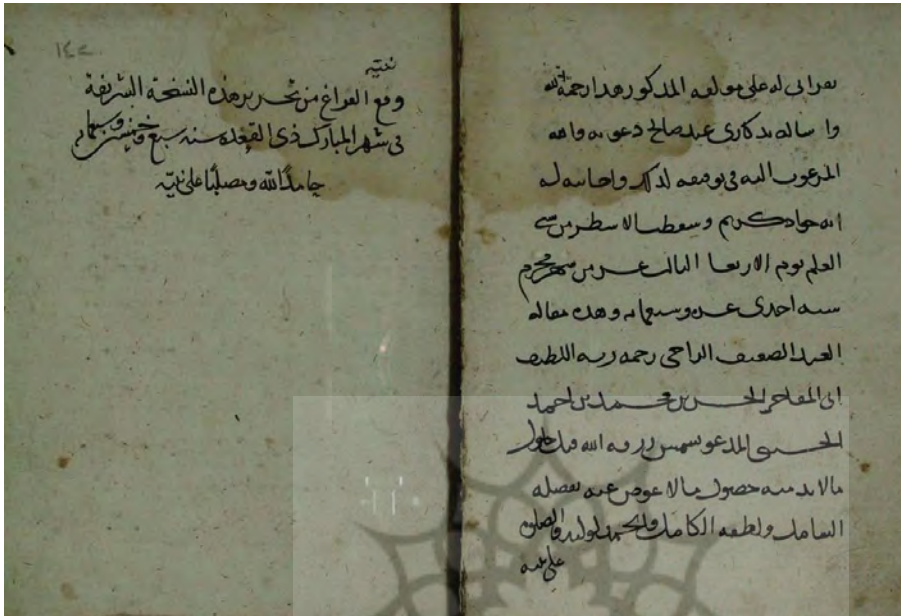 بقراتى له على مولفه المذكور هذا رحمه الله
واساله تذكارى عند صالح دعوته فانه
المرغوب اليه فى توفيقه لذلك واجابته له
انه جواد كريم وسقطت الاسطر من
القلم يوم الاربعا الثالث عشر من شهر محرم
سنه احدى عشره وسبعمايه وهذه مقاله
العبد الضعيف الراجى رحمه ربه اللطيف
ابى المفاخر الحسن بن محمد بن احمد
المدعو بشمس رزقه الله قبل حلول
مالابد منه حصول مالا عوض عنه بفضله
الشامل ولطفه الكامل والحمد لوليه والصلوه
على نبيه
١٤٢
وقع الفراغ من تحرير هذه النسخة الشريفة
فى شهر المبارك ذى القعده سنه سبع وخمسين وسبعمايه
حامدًا لله ومصليًا على نبيّه